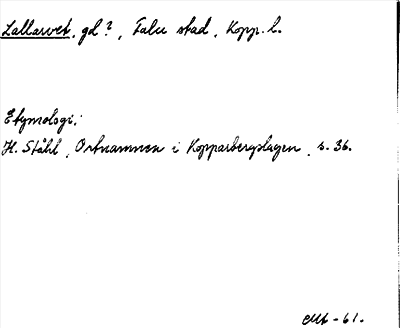 Lallarvet, gd?, Falu stad, Kopp. l.
Etymologi:
H. Ståhl, Ortnamnen i Kopparbergslagen, s. 36.
-61.